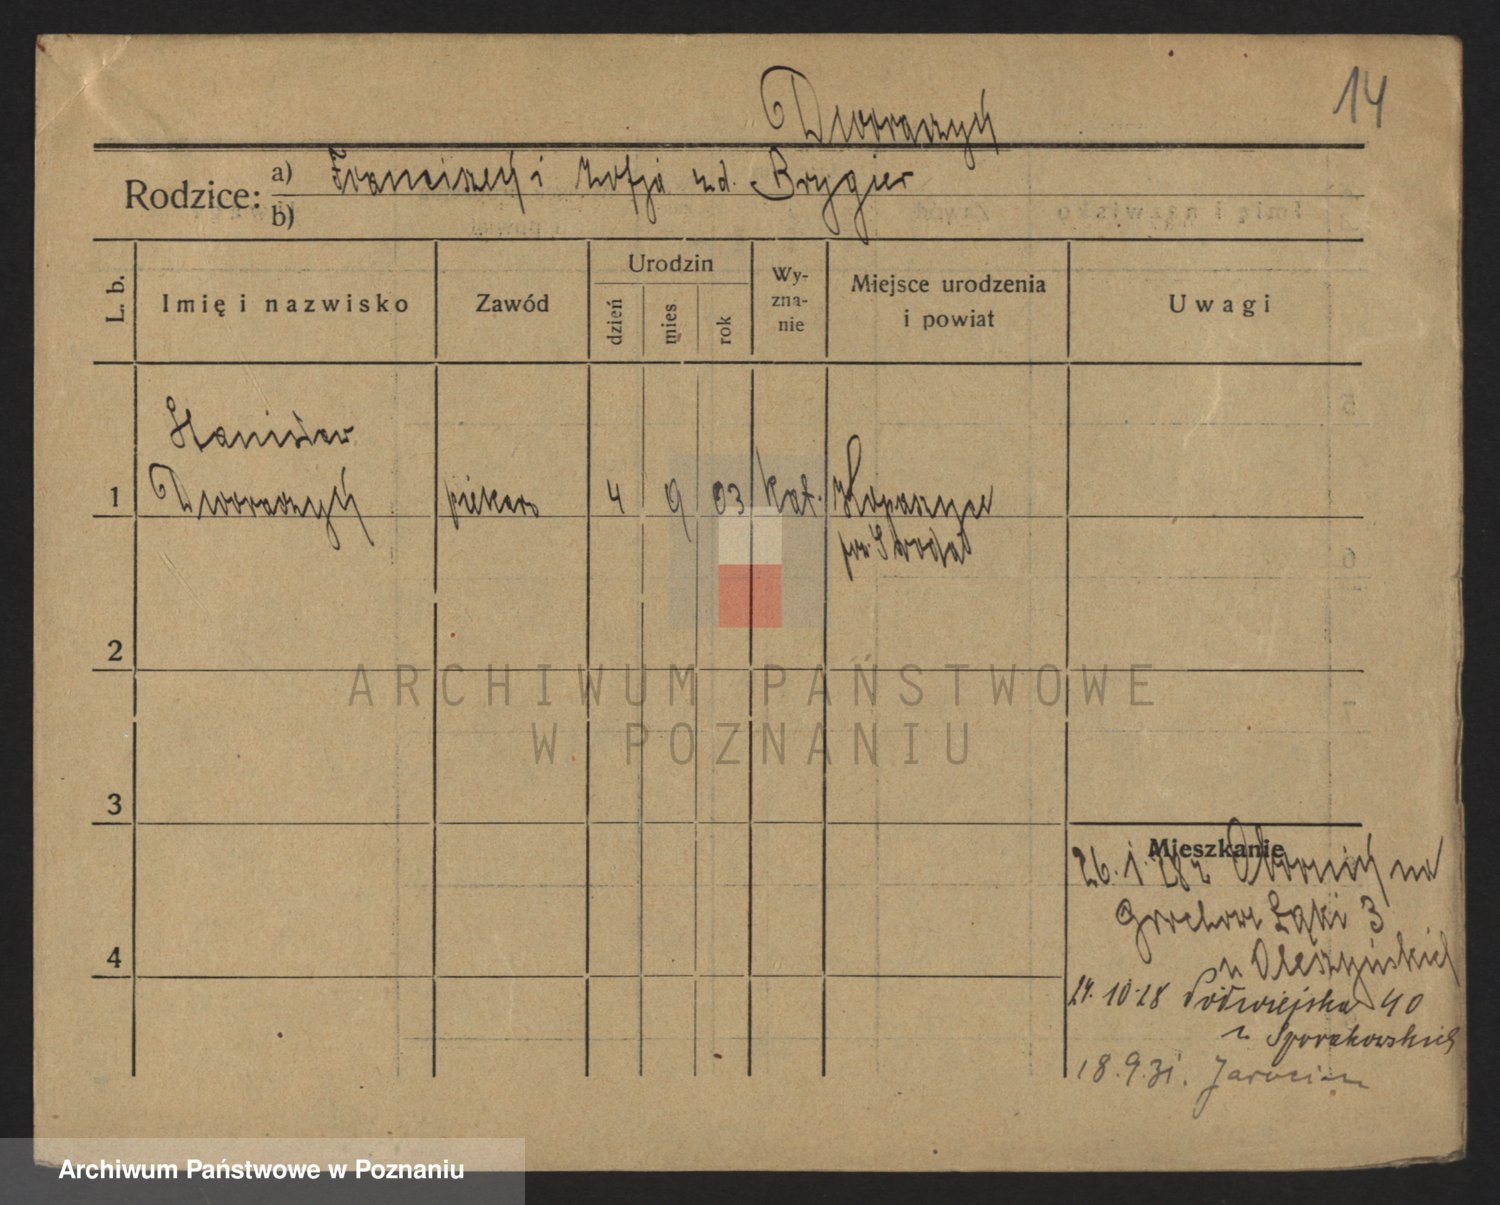 14
Dworaczyk
Rodzice: a) Franciszek i Zofja zd. Brygier
b)
L. b.
Imię i nazwisko
Zawód
Urodzin
dzień
mies
rok
Wy-
zna-
nie
Miejsce urodzenia
i powiat
Uwagi
Stanisław
1 Dworaczyk piekarz 4 9 03 kat.
pow. Środa
2
3
4
Mieszkanie
26. 1. 28 z Obornik na
Grochowe Łąki 3
u Oleszyńskich
24. 10 28 Podwiejska 40
u Sporakowskich
18. 9. 31. Jarocin
ARCHIWUM PAŃSTWOWE
W POZNANIU
Archiwum Państwowe w Poznaniu